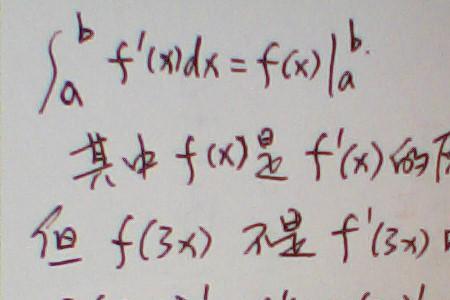 ∫_a^b f'(x)dx = f(x)|_a^b.
其中 f(x)是 f'(x)的
但 f(3x) 不是 f'(3x)